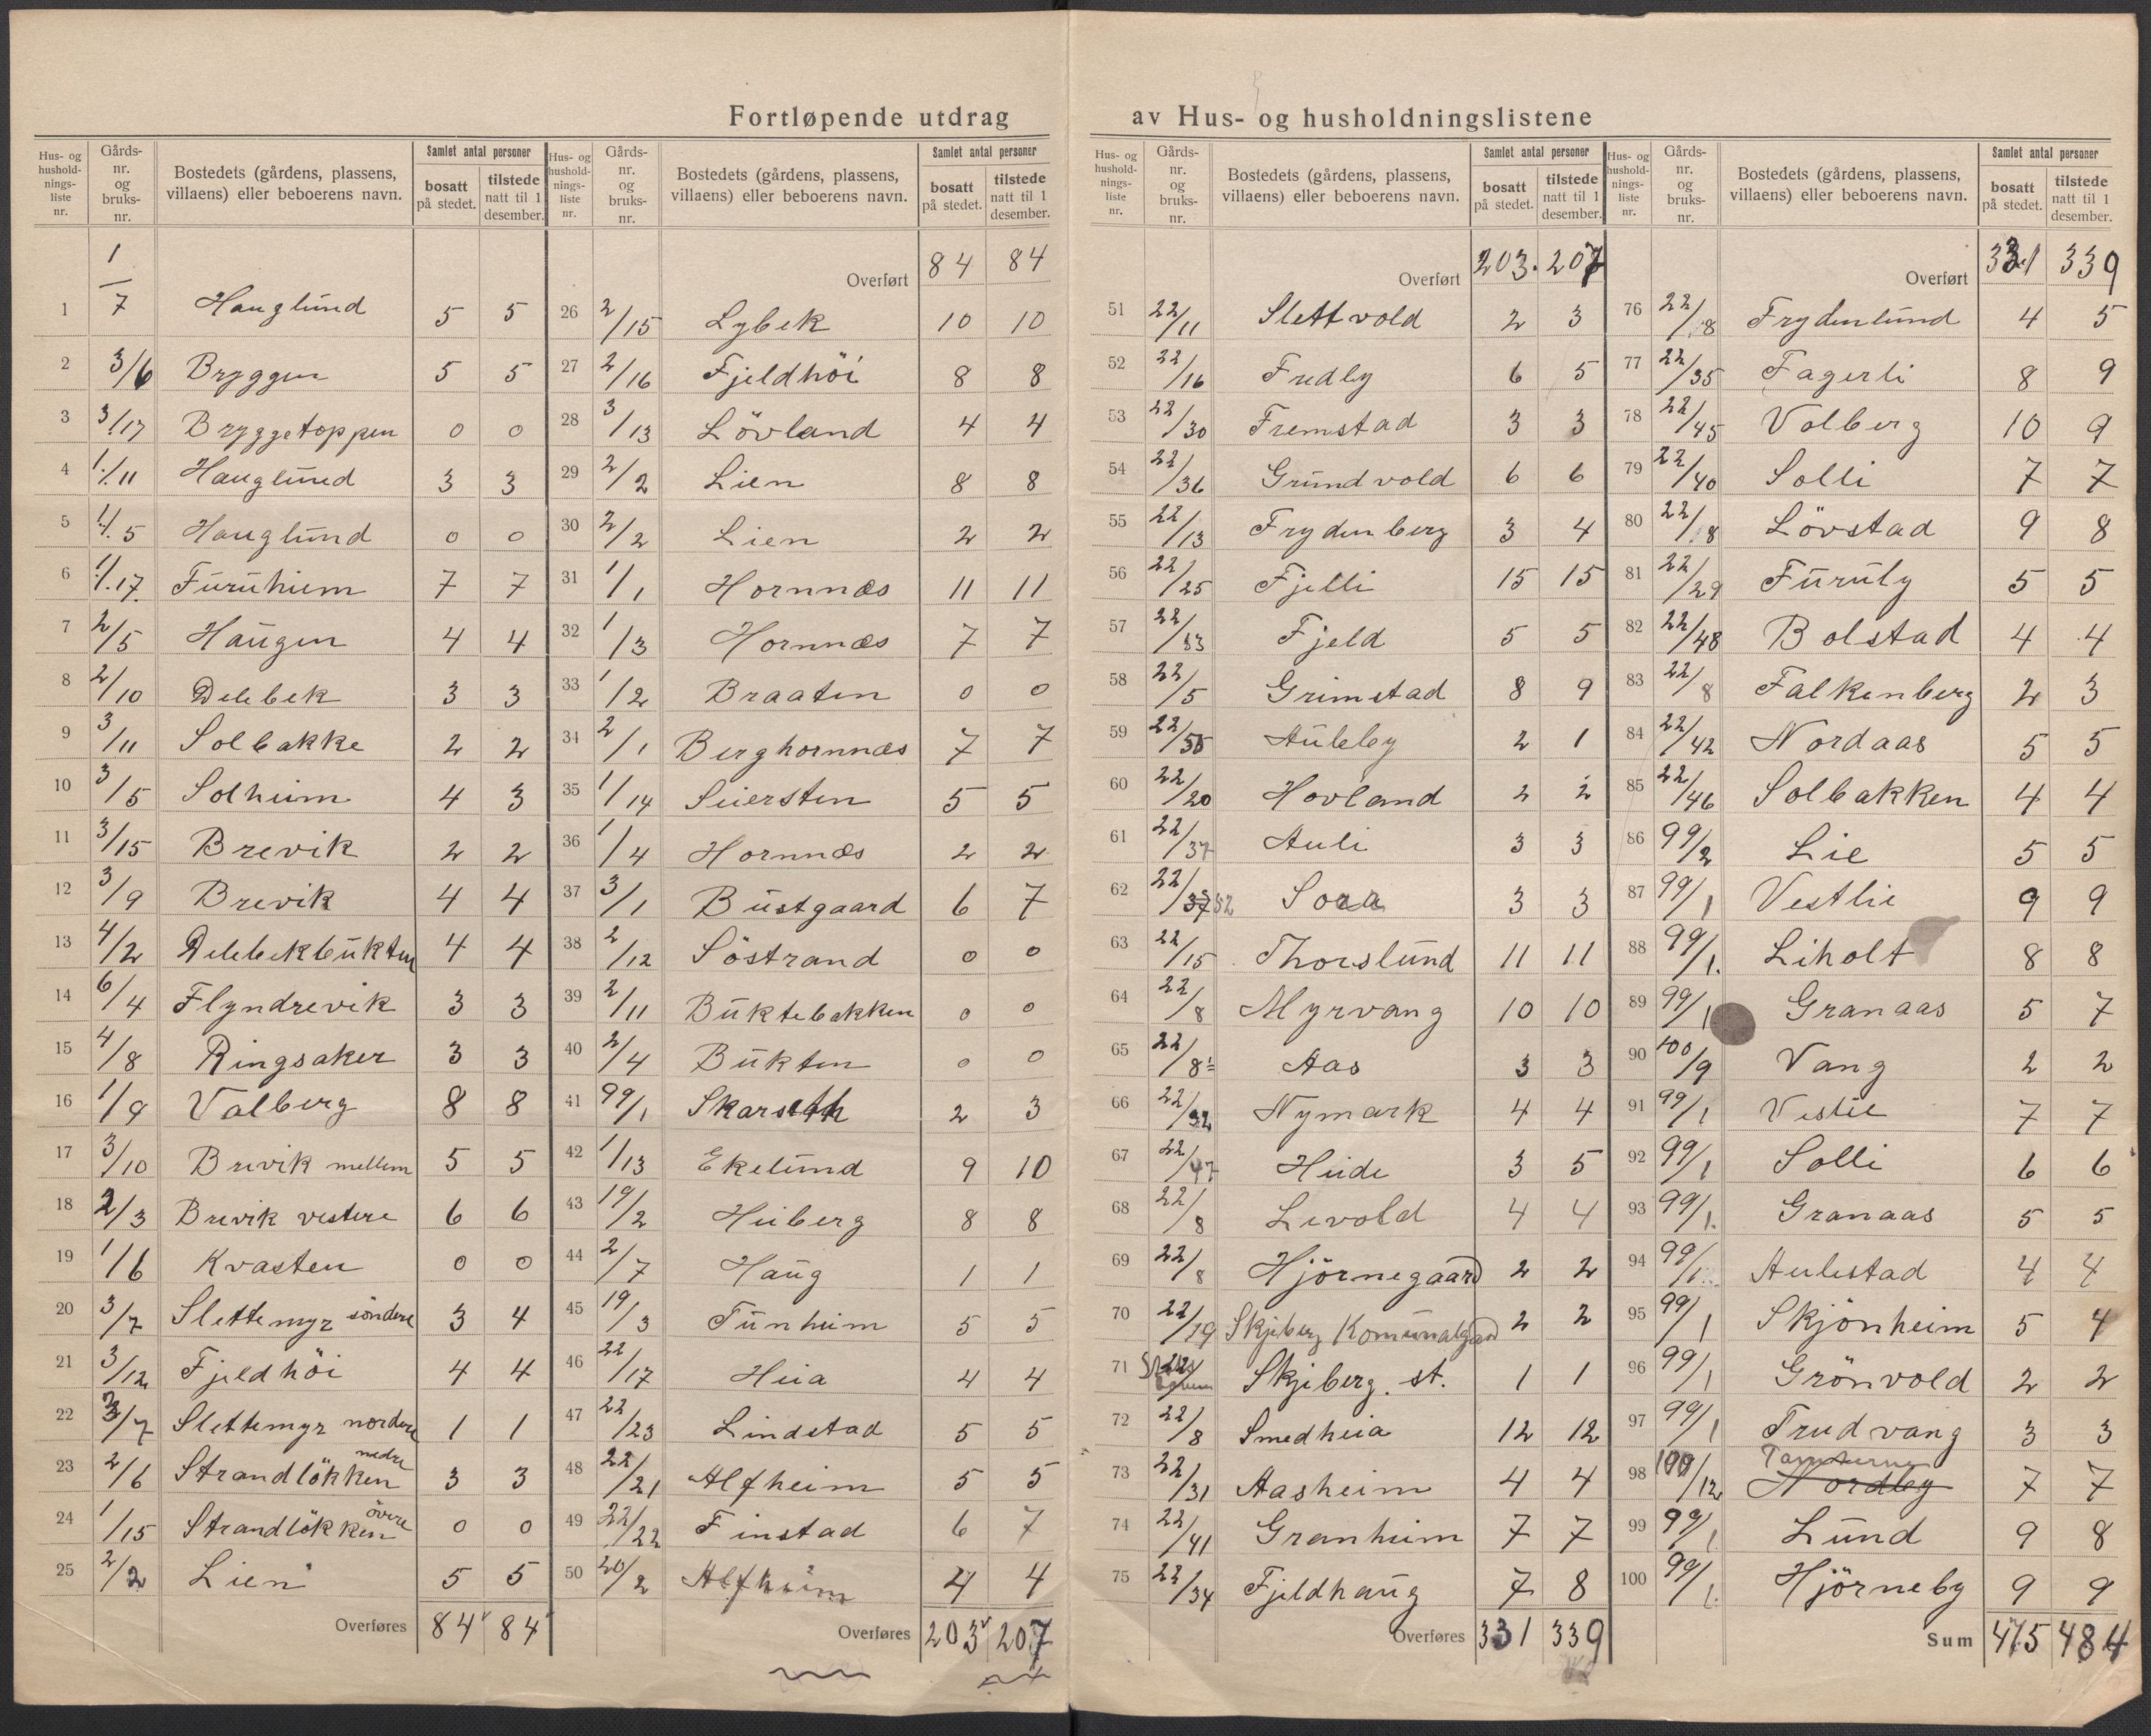 Fortløpende utdrag av Hus- og husholdningslistene
Hus- og husholdningsliste nr. | Gårdsnr. og bruksnr. | Bostedets (gårdens, plassens, villaens) eller beboerens navn. | Samlet antal personer bosatt på stedet. | tilstede natt til 1 desember.
1 1/7 Hauglund 5 5
2 3/6 Bryggen 5 5
3 3/17 Bryggetoppen 0 0
4 1/11 Hauglund 3 3
5 1/5 Hauglund 0 0
6 1/17 Furuheim 7 7
7 2/5 Haugen 4 4
8 2/10 Delebek 3 3
9 3/11 Solbakke 2 2
10 3/5 Solheim 4 3
11 3/15 Brevik 2 2
12 3/9 Brevik 4 4
13 4/2 Delebekbukten 4 4
14 6/4 Flyndrevik 3 3
15 4/8 Ringsaker 3 3
16 1/9 Valberg 8 8
17 3/10 Brevik mellem 5 5
18 2/3 Brevik vestere 6 6
19 1/6 Kvasten 0 0
20 3/7 Slettemyr söndre 3 4
21 3/12 Fjeldhöi 4 4
22 /7 Slettemyr nordre 1 1
23 2/6 Strandlökken nedre 3 3
24 1/15 Strandlökken övre 0 0
25 2/2 Lien 5 5
Overføres 84 84
Hus- og husholdningsliste nr. | Gårdsnr. og bruksnr. | Bostedets (gårdens, plassens, villaens) eller beboerens navn. | Samlet antal personer bosatt på stedet. | tilstede natt til 1 desember.
Overført 84 84
26 2/15 Lybek 10 10
27 2/16 Fjeldhöi 8 8
28 3/13 Lövland 4 4
29 2/2 Lien 8 8
30 2/2 Lien 2 2
31 1/1 Hornnæs 11 11
32 1/3 Hornnæs 7 7
33 1/2 Braaten 0 0
34 2/1 Berghornnæs 7 7
35 1/14 Seiersten 5 5
36 1/4 Hornnæs 2 2
37 3/1 Bustgaard 6 7
38 2/12 Söstrand 0 0
39 2/11 Buktebakken 0 0
40 2/4 Bukten 0 0
41 99/1 Skarseth 2 3
42 1/13 Ekelund 9 10
43 19/2 Heiberg 8 8
44 2/7 Haug 1 1
45 19/3 Tunheim 5 5
46 22/17 Heia 4 4
47 22/23 Lindstad 5 5
48 22/21 Alfheim 5 5
49 22/22 Finstad 6 7
50 20/2 Alfheim 4 4
Overføres 203 207
Hus- og husholdningsliste nr. | Gårdsnr. og bruksnr. | Bostedets (gårdens, plassens, villaens) eller beboerens navn. | Samlet antal personer bosatt på stedet. | tilstede natt til 1 desember.
Overført 203 207
51 22/11 Slettvold 2 3
52 22/16 Fredly 6 5
53 22/30 Fremstad 3 3
54 22/36 Grundvold 6 6
55 22/13 Frydenberg 3 4
56 22/25 Fjelli 15 15
57 22/33 Fjeld 5 5
58 22/5 Grimstad 8 9
59 22/55 Auleby 2 1
60 22/20 Hovland 2 2
61 22/37 Auli 3 3
62 22/52 Sora 3 3
63 22/15 Thorslund 11 11
64 22/8 Myrvang 10 10
65 22/8 Aas 3 3
66 22/32 Nymark 4 4
67 22/47 Heide 3 5
68 22/8 Levold 4 4
69 22/8 Hjörnegaard 2 2
70 22/19 Skjeberg Komunalgård 2 2
71 Skjeberg. st. 1 1
72 22/8 Smedheia 12 12
73 22/31 Aasheim 4 4
74 22/41 Granheim 7 7
75 22/34 Fjeldhaug 7 8
Overføres 331 339
Hus- og husholdningsliste nr. | Gårdsnr. og bruksnr. | Bostedets (gårdens, plassens, villaens) eller beboerens navn. | Samlet antal personer bosatt på stedet. | tilstede natt til 1 desember.
Overført 331 339
76 22/8 Frydenlund 4 5
77 22/35 Fagerli 8 9
78 22/45 Volberg 10 9
79 22/40 Solli 7 7
80 22/8 Lövstad 9 8
81 22/29 Furuly 5 5
82 22/48 Bolstad 4 4
83 22/8 Falkenberg 2 3
84 22/42 Nordaas 5 5
85 22/46 Solbakken 4 4
86 99/2 Lie 5 5
87 99/1 Vestlie 9 9
88 99/1. Liholt 8 8
89 99/1 Granaas 5 7
90 100/9 Vang 2 2
91 99/1 Vestlie 7 7
92 99/1 Solli 6 6
93 99/1. Granaas 5 5
94 99/1. Aulestad 4 4
95 99/1 Skjönheim 5 4
96 99/1 Grönvold 2 2
97 99/1 Trudvang 3 3
98 100/12 Nordby 7 7
99 99/1 Lund 9 8
100 99/1. Hjörneby 9 9
Sum 475 484